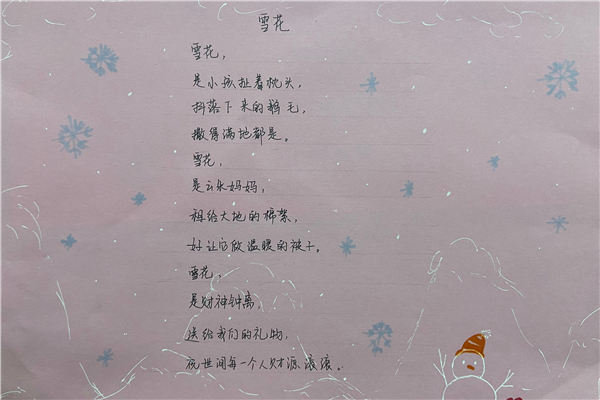 雪花
雪花，
是小孩扯着枕头，
抖落下来的鹅毛，
撒得满地都是。
雪花，
是云朵妈妈，
捐给大地的棉絮，
好让它做温暖的被子。
雪花，
是财神钟离，
送给我们的礼物，
祝世间每一个人财源滚滚。